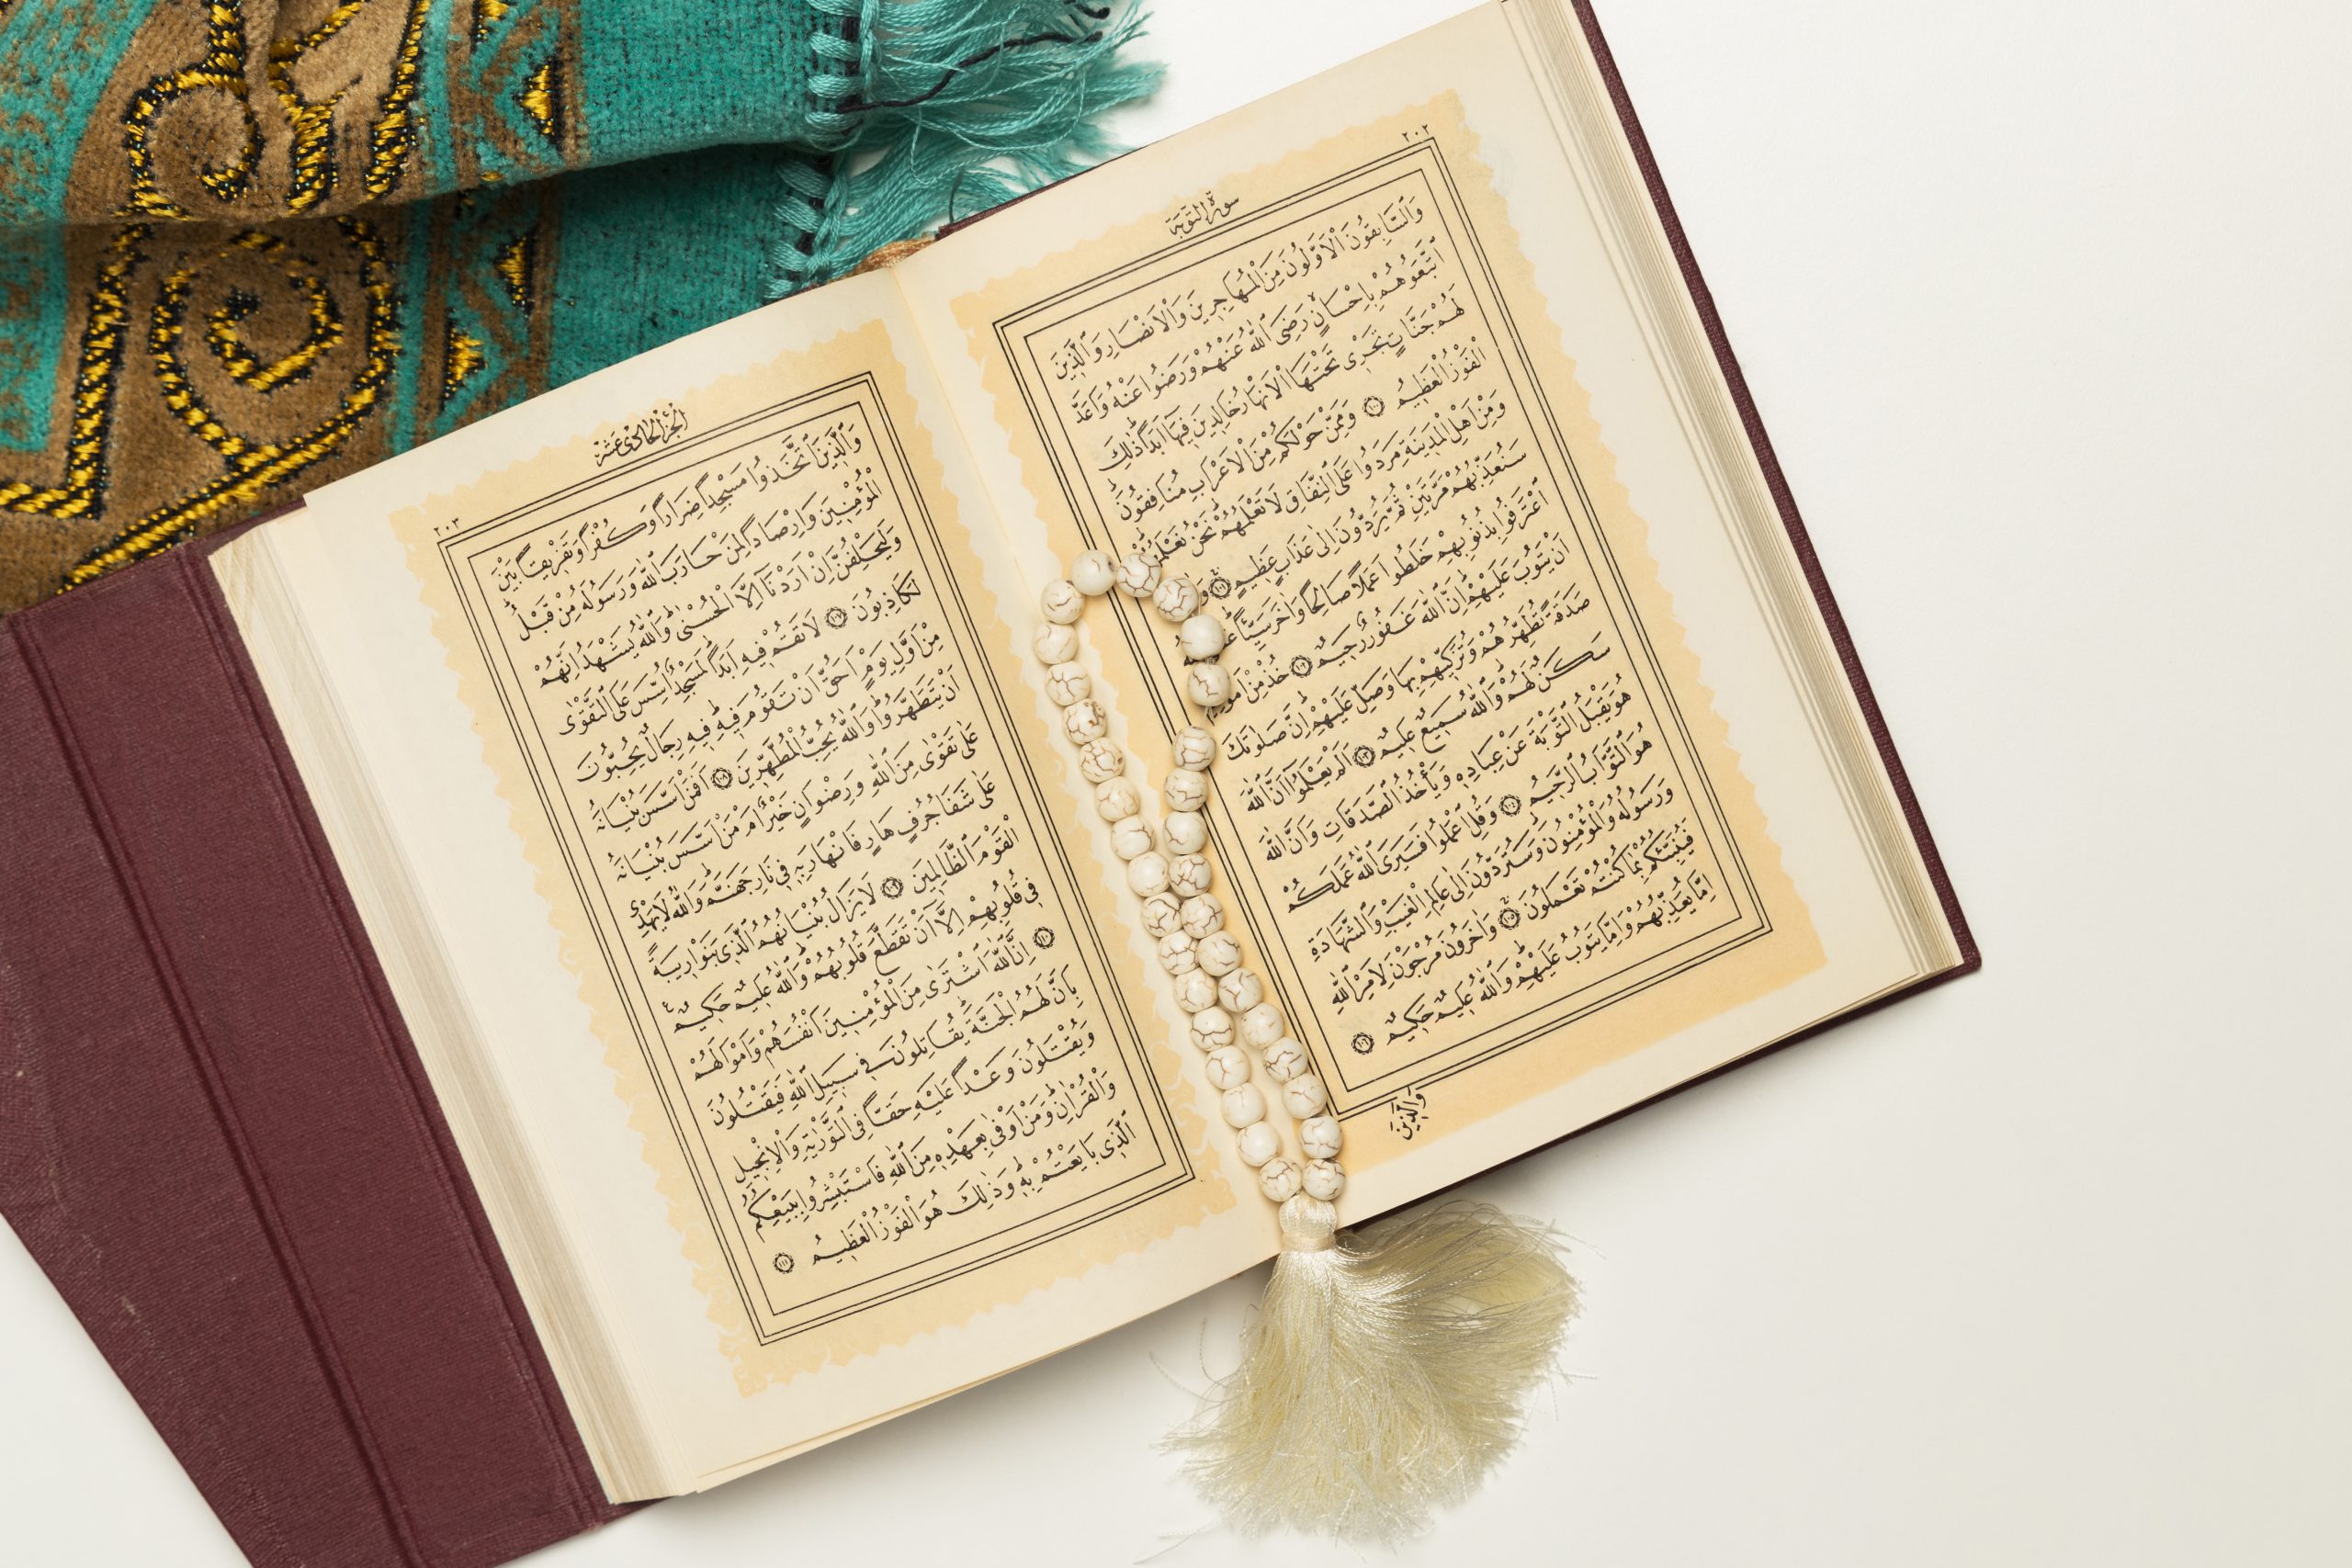 ٢٠٢
سورة التوبة
وَالسَّابِقُونَ الْاَوَّلُونَ مِنَ الْمُهَاجِرِينَ وَالْاَنْصَارِ وَالَّذِينَ
اتَّبَعُوهُمْ بِاِحْسَانٍ رَضِىَ اللّٰهُ عَنْهُمْ وَرَضُوا عَنْهُ وَاَعَدَّ
لَهُمْ جَنَّاتٍ تَجْرِى تَحْتَهَا الْاَنْهَارُ خَالِدِينَ فِيهَا اَبَدًا ذٰلِكَ
الْفَوْزُ الْعَظِيمُ ١٠٠ وَمِمَّنْ حَوْلَكُمْ مِنَ الْاَعْرَابِ مُنَافِقُونَ
وَمِنْ اَهْلِ الْمَدِينَةِ مَرَدُوا عَلَى النِّفَاقِ لَا تَعْلَمُهُمْ نَحْنُ نَعْلَمُهُمْ
سَنُعَذِّبُهُمْ مَرَّتَيْنِ ثُمَّ يُرَدُّونَ اِلٰى عَذَابٍ عَظِيمٍ ١٠١
اعْتَرَفُوا بِذُنُوبِهِمْ خَلَطُوا عَمَلًا صَالِحًا وَاٰخَرَ سَيِّئًا
اَنْ يَتُوبَ عَلَيْهِمْ اِنَّ اللّٰهَ غَفُورٌ رَحِيمٌ ١٠٢ خُذْ مِنْ
صَدَقَةً تُطَهِّرُهُمْ وَتُزَكِّيهِمْ بِهَا وَصَلِّ عَلَيْهِمْ اِنَّ صَلٰوتَكَ
سَكَنٌ لَهُمْ وَاللّٰهُ سَمِيعٌ عَلِيمٌ ١٠٣ اَلَمْ يَعْلَمُوا اَنَّ اللّٰهَ
هُوَ يَقْبَلُ التَّوْبَةَ عَنْ عِبَادِهِ وَيَأْخُذُ الصَّدَقَاتِ وَاَنَّ اللّٰهَ
هُوَ التَّوَّابُ الرَّحِيمُ ١٠٤ وَقُلِ اعْمَلُوا فَسَيَرَى اللّٰهُ عَمَلَكُمْ
وَرَسُولُهُ وَالْمُؤْمِنُونَ وَسَتُرَدُّونَ اِلٰى عَالِمِ الْغَيْبِ وَالشَّهَادَةِ
فَيُنَبِّئُكُمْ بِمَا كُنْتُمْ تَعْمَلُونَ ١٠٥ وَاٰخَرُونَ مُرْجَوْنَ لِاَمْرِ اللّٰهِ
اِمَّا يُعَذِّبُهُمْ وَاِمَّا يَتُوبُ عَلَيْهِمْ وَاللّٰهُ عَلِيمٌ حَكِيمٌ ١٠٦
وَالَّذِينَ
٢٠٣
الجزء الحادى عشر
وَالَّذِينَ اتَّخَذُوا مَسْجِدًا ضِرَارًا وَكُفْرًا وَتَفْرِيقًا بَيْنَ
الْمُؤْمِنِينَ وَاِرْصَادًا لِمَنْ حَارَبَ اللّٰهَ وَرَسُولَهُ مِنْ قَبْلُ
وَلَيَحْلِفُنَّ اِنْ اَرَدْنَا اِلَّا الْحُسْنٰى وَاللّٰهُ يَشْهَدُ اِنَّهُمْ
لَكَاذِبُونَ ١٠٧ لَا تَقُمْ فِيهِ اَبَدًا لَمَسْجِدٌ اُسِّسَ عَلَى التَّقْوٰى
مِنْ اَوَّلِ يَوْمٍ اَحَقُّ اَنْ تَقُومَ فِيهِ فِيهِ رِجَالٌ يُحِبُّونَ
اَنْ يَتَطَهَّرُوا وَاللّٰهُ يُحِبُّ الْمُطَّهِّرِينَ ١٠٨ اَفَمَنْ اَسَّسَ بُنْيَانَهُ
عَلٰى تَقْوٰى مِنَ اللّٰهِ وَرِضْوَانٍ خَيْرٌ اَمْ مَنْ اَسَّسَ بُنْيَانَهُ
عَلٰى شَفَا جُرُفٍ هَارٍ فَانْهَارَ بِهِ فِى نَارِ جَهَنَّمَ وَاللّٰهُ لَا يَهْدِى
الْقَوْمَ الظَّالِمِينَ ١٠٩ لَا يَزَالُ بُنْيَانُهُمُ الَّذِى بَنَوْا رِيبَةً
فِى قُلُوبِهِمْ اِلَّا اَنْ تَقَطَّعَ قُلُوبُهُمْ وَاللّٰهُ عَلِيمٌ حَكِيمٌ
١١٠ اِنَّ اللّٰهَ اشْتَرٰى مِنَ الْمُؤْمِنِينَ اَنْفُسَهُمْ وَاَمْوَالَهُمْ
بِاَنَّ لَهُمُ الْجَنَّةَ يُقَاتِلُونَ فِى سَبِيلِ اللّٰهِ فَيَقْتُلُونَ
وَيُقْتَلُونَ وَعْدًا عَلَيْهِ حَقًّا فِى التَّوْرٰيةِ وَالْاِنْجِيلِ
وَالْقُرْاٰنِ وَمَنْ اَوْفٰى بِعَهْدِهِ مِنَ اللّٰهِ فَاسْتَبْشِرُوا بِبَيْعِكُمُ
الَّذِى بَايَعْتُمْ بِهِ وَذٰلِكَ هُوَ الْفَوْزُ الْعَظِيمُ ١١١